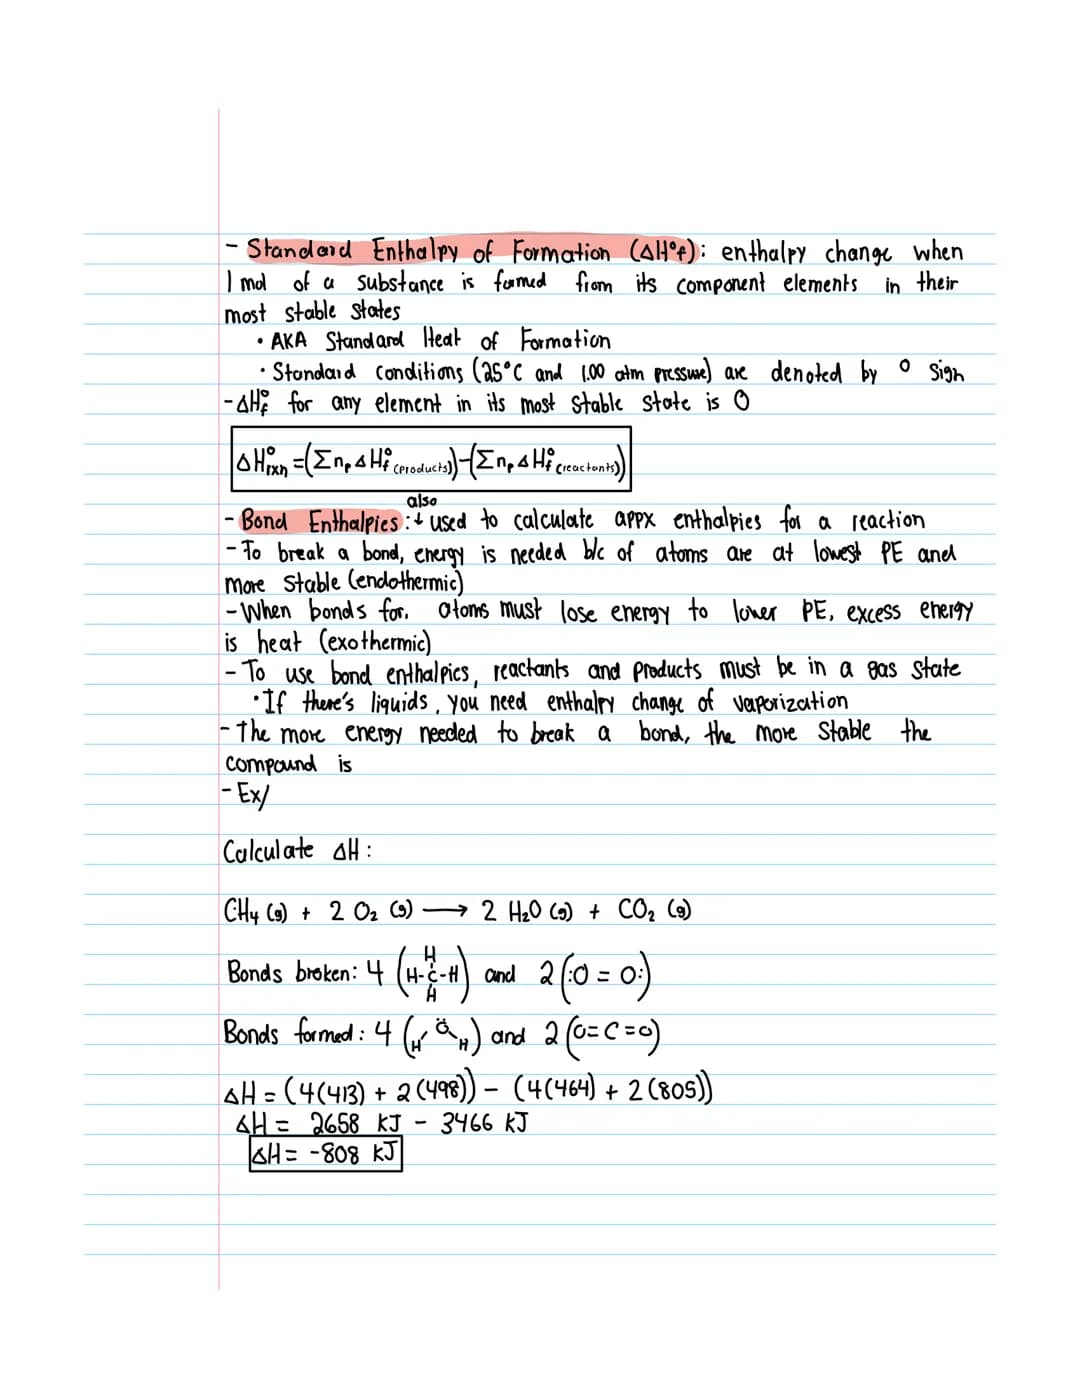 - Standard Enthalpy of Formation (ΔH°f): enthalpy change when
1 mol of a substance is formed from its component elements in their
most stable states
• AKA Standard Heat of Formation
• Standard Conditions (25°C and 1.00 atm pressure) are denoted by ° sign
- ΔH°f for any element in its most stable state is 0
ΔH°rxn = (Σnp ΔH°f (products)) - (Σnp ΔH°f (reactants))
also
- Bond Enthalpies: ↓ used to calculate appx enthalpies for a reaction
- To break a bond, energy is needed b/c of atoms are at lowest PE and
more stable (endothermic)
- When bonds for. atoms must lose energy to lower PE, excess energy
is heat (exothermic)
- To use bond enthalpies, reactants and products must be in a gas state
• If there's liquids, you need enthalpy change of vaporization
- The more energy needed to break a bond, the more stable the
compound is
- Ex/
Calculate ΔH:
CH4 (g) + 2 O2 (g) ⟶ 2 H2O (g) + CO2 (g)
H
Bonds broken: 4 (H-C-H) and 2 (:O = O:)
H
Bonds formed: 4 (H O H) and 2 (O=C=O)
ΔH = (4(413) + 2(498)) - (4(464) + 2(805))
ΔH = 2658 KJ - 3466 KJ
ΔH = -808 KJ